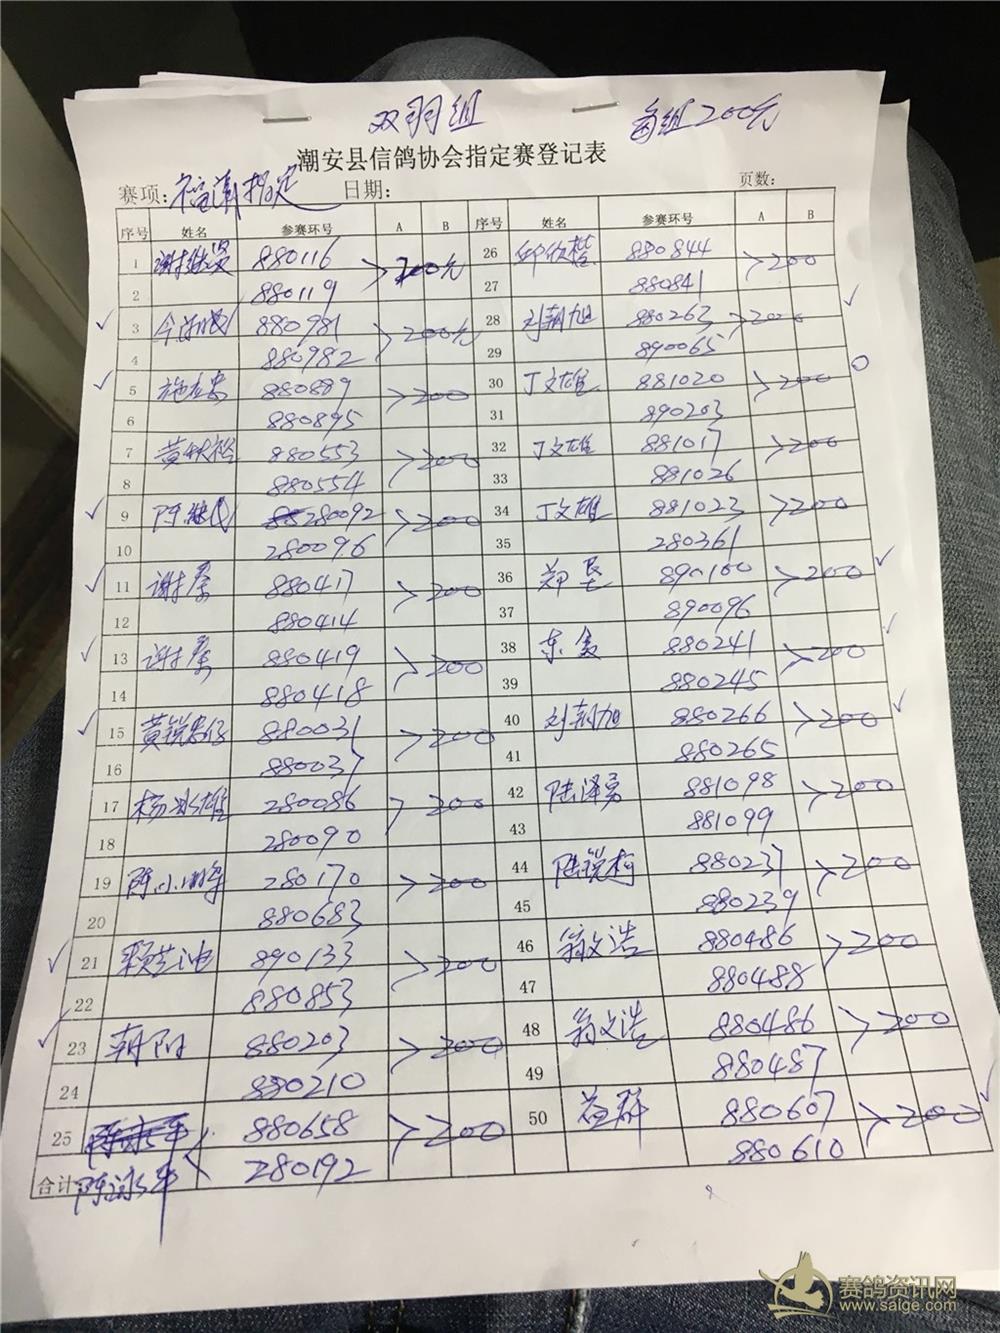 双羽组 每组200元
潮安县信鸽协会指定赛登记表
赛项: 指定 日期: 页数:
序号 姓名 参赛环号 A B 序号 姓名 参赛环号 A B
1 880116 >200元 26 880844 >200
2 880119 27 880841
3 880981 >200元 28 刘朝旭 880263 >200
4 880982 29 890065
5 880889 >200 30 丁文雄 881020 >200
6 880895 31 890203
7 黄秋裕 880553 >200 32 丁文雄 881017 >200
8 880554 33 881026
9 280092 >200 34 丁文雄 881023 >200
10 280096 35 280361
11 谢 880417 >200 36 890100 >200
12 880414 37 890096
13 谢 880419 >200 38 880241 >200
14 880418 39 880245
15 黄锐 880031 >200 40 刘朝旭 880266 >200
16 880037 41 880265
17 杨冰雄 280086 >200 42 陆泽勇 881098 >200
18 280090 43 881099
19 陈小 280170 >200 44 陆锐 880237 >200
20 880683 45 880239
21 890133 >200 46 翁文浩 880486 >200
22 880853 47 880488
23 朝阳 880203 >200 48 翁文浩 880486 >200
24 880210 49 880487
25 880658 >200 50 益群 880607 >200
合计: 陈冰平 280192 880610
赛鸽资讯网
www.saige.com